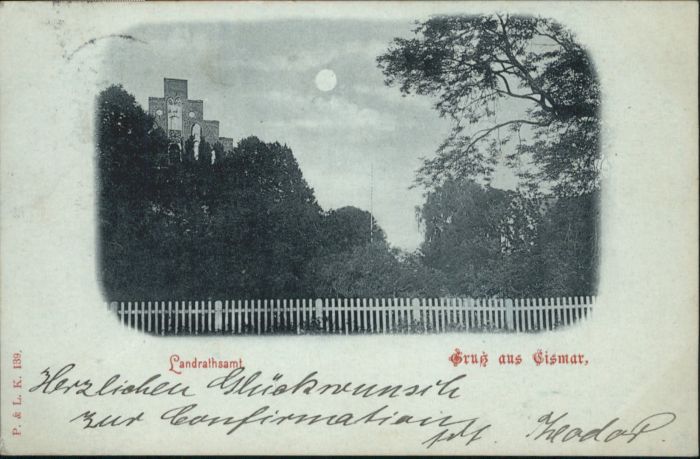 Landrathsamt
Gruß aus Cismar,
P. & L. K. 139.
Herzlichen Glückwunsch
zur Confirmation
Theodor